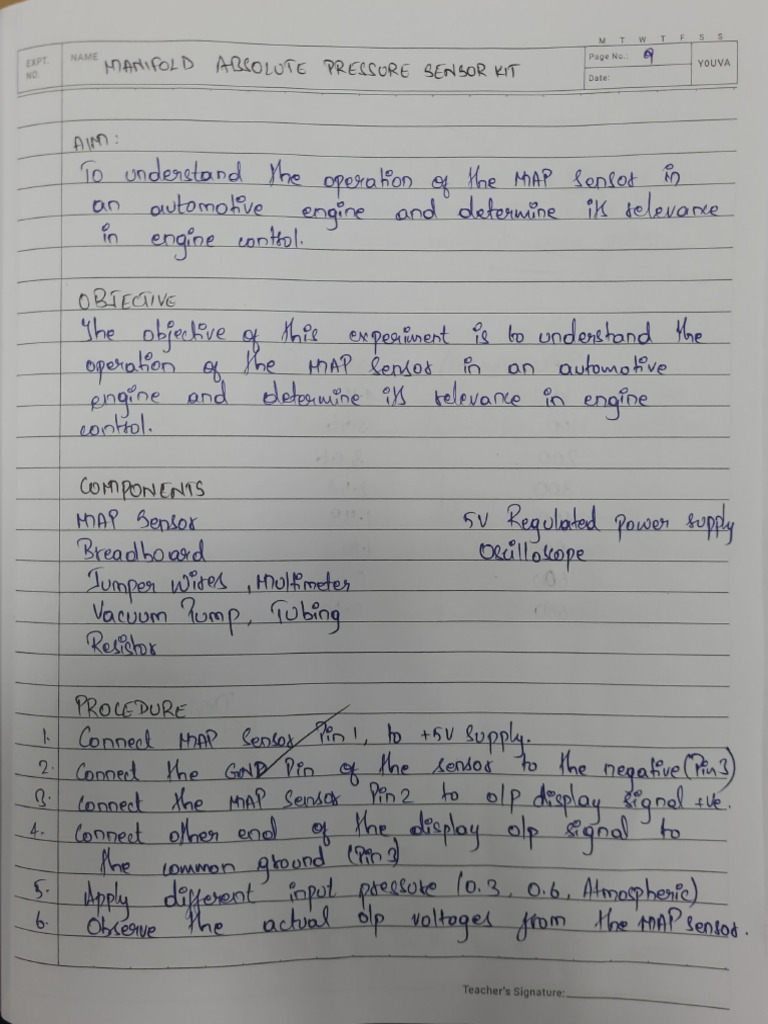 M T W T F S S
EXPT. NO. NAME MANIFOLD ABSOLUTE PRESSURE SENSOR KIT Page No.: 9 YOUVA
Date:
AIM:
To understand the operation of the MAP Sensor in
an automotive engine and determine its relevance
in engine control.
OBJECTIVE
The objective of this experiment is to understand the
operation of the MAP Sensor in an automotive
engine and determine its relevance in engine
control.
COMPONENTS
MAP Sensor 5V Regulated power supply
Breadboard Oscilloscope
Jumper wires, Multimeter
Vacuum Pump, Tubing
Resistor
PROCEDURE
1. Connect MAP Sensor Pin 1, to +5V supply.
2. Connect the GND Pin of the sensor to the negative (Pin3)
3. Connect the MAP Sensor Pin2 to o/p display signal +ve.
4. Connect other end of the display o/p signal to
the common ground (Pin3)
5. Apply different input pressure (0.3, 0.6, Atmospheric)
6. Observe the actual o/p voltages from the MAP sensor.
Teacher's Signature: